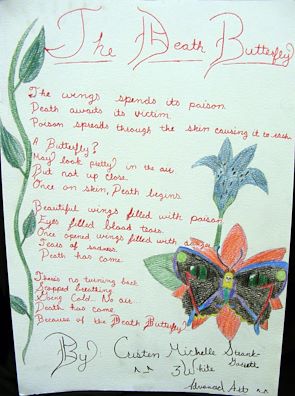 The Death Butterfly
The wings spends its poison.
Death awaits its victim.
Poison spreads through the skin causing it to
A Butterfly?
May look pretty in the air
But not up close.
Once on skin, Death begins.
Beautiful wings filled with poison
Eyes filled blood tears.
Once opened wings filled with danger
Tears of sadness.
Death has come.
There's no turning back.
Stopped breathing.
Going Cold. No air...
Death has come
Because of the Death Butterfly
By Cristen Michelle
3 White
Advanced Art
^^ ^^